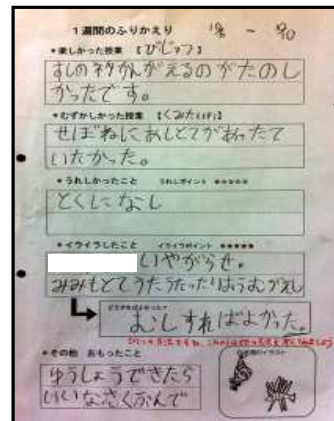 1週間のふりかえり 9/6 ~ 9/10
*楽しかった授業 【びじゅつ】
すしのネタかんがえるのがたのし
かったです。
*むずかしかった授業 【くみたいそう】
せぼねにあしとてがあったて
いたかった。
*うれしかったこと うれしポイント
とくになし
*イライラしたこと イライラポイント ★★★★★
いやがらせ。
みみもとでうたうたったりおうむがえし
どうすればよかった?
むしすればよかった。
ひとつの方法ですね。これからは他の方法を考えてみましょう
*その他 おもったこと
ゆうしょうできたら
いいなさくぶんで